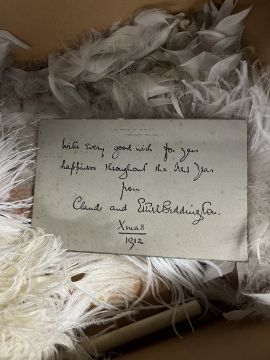 With Every good wish for your
happiness throughout the New Year
from
Claud and Ethel Beddington.
Xmas
1912